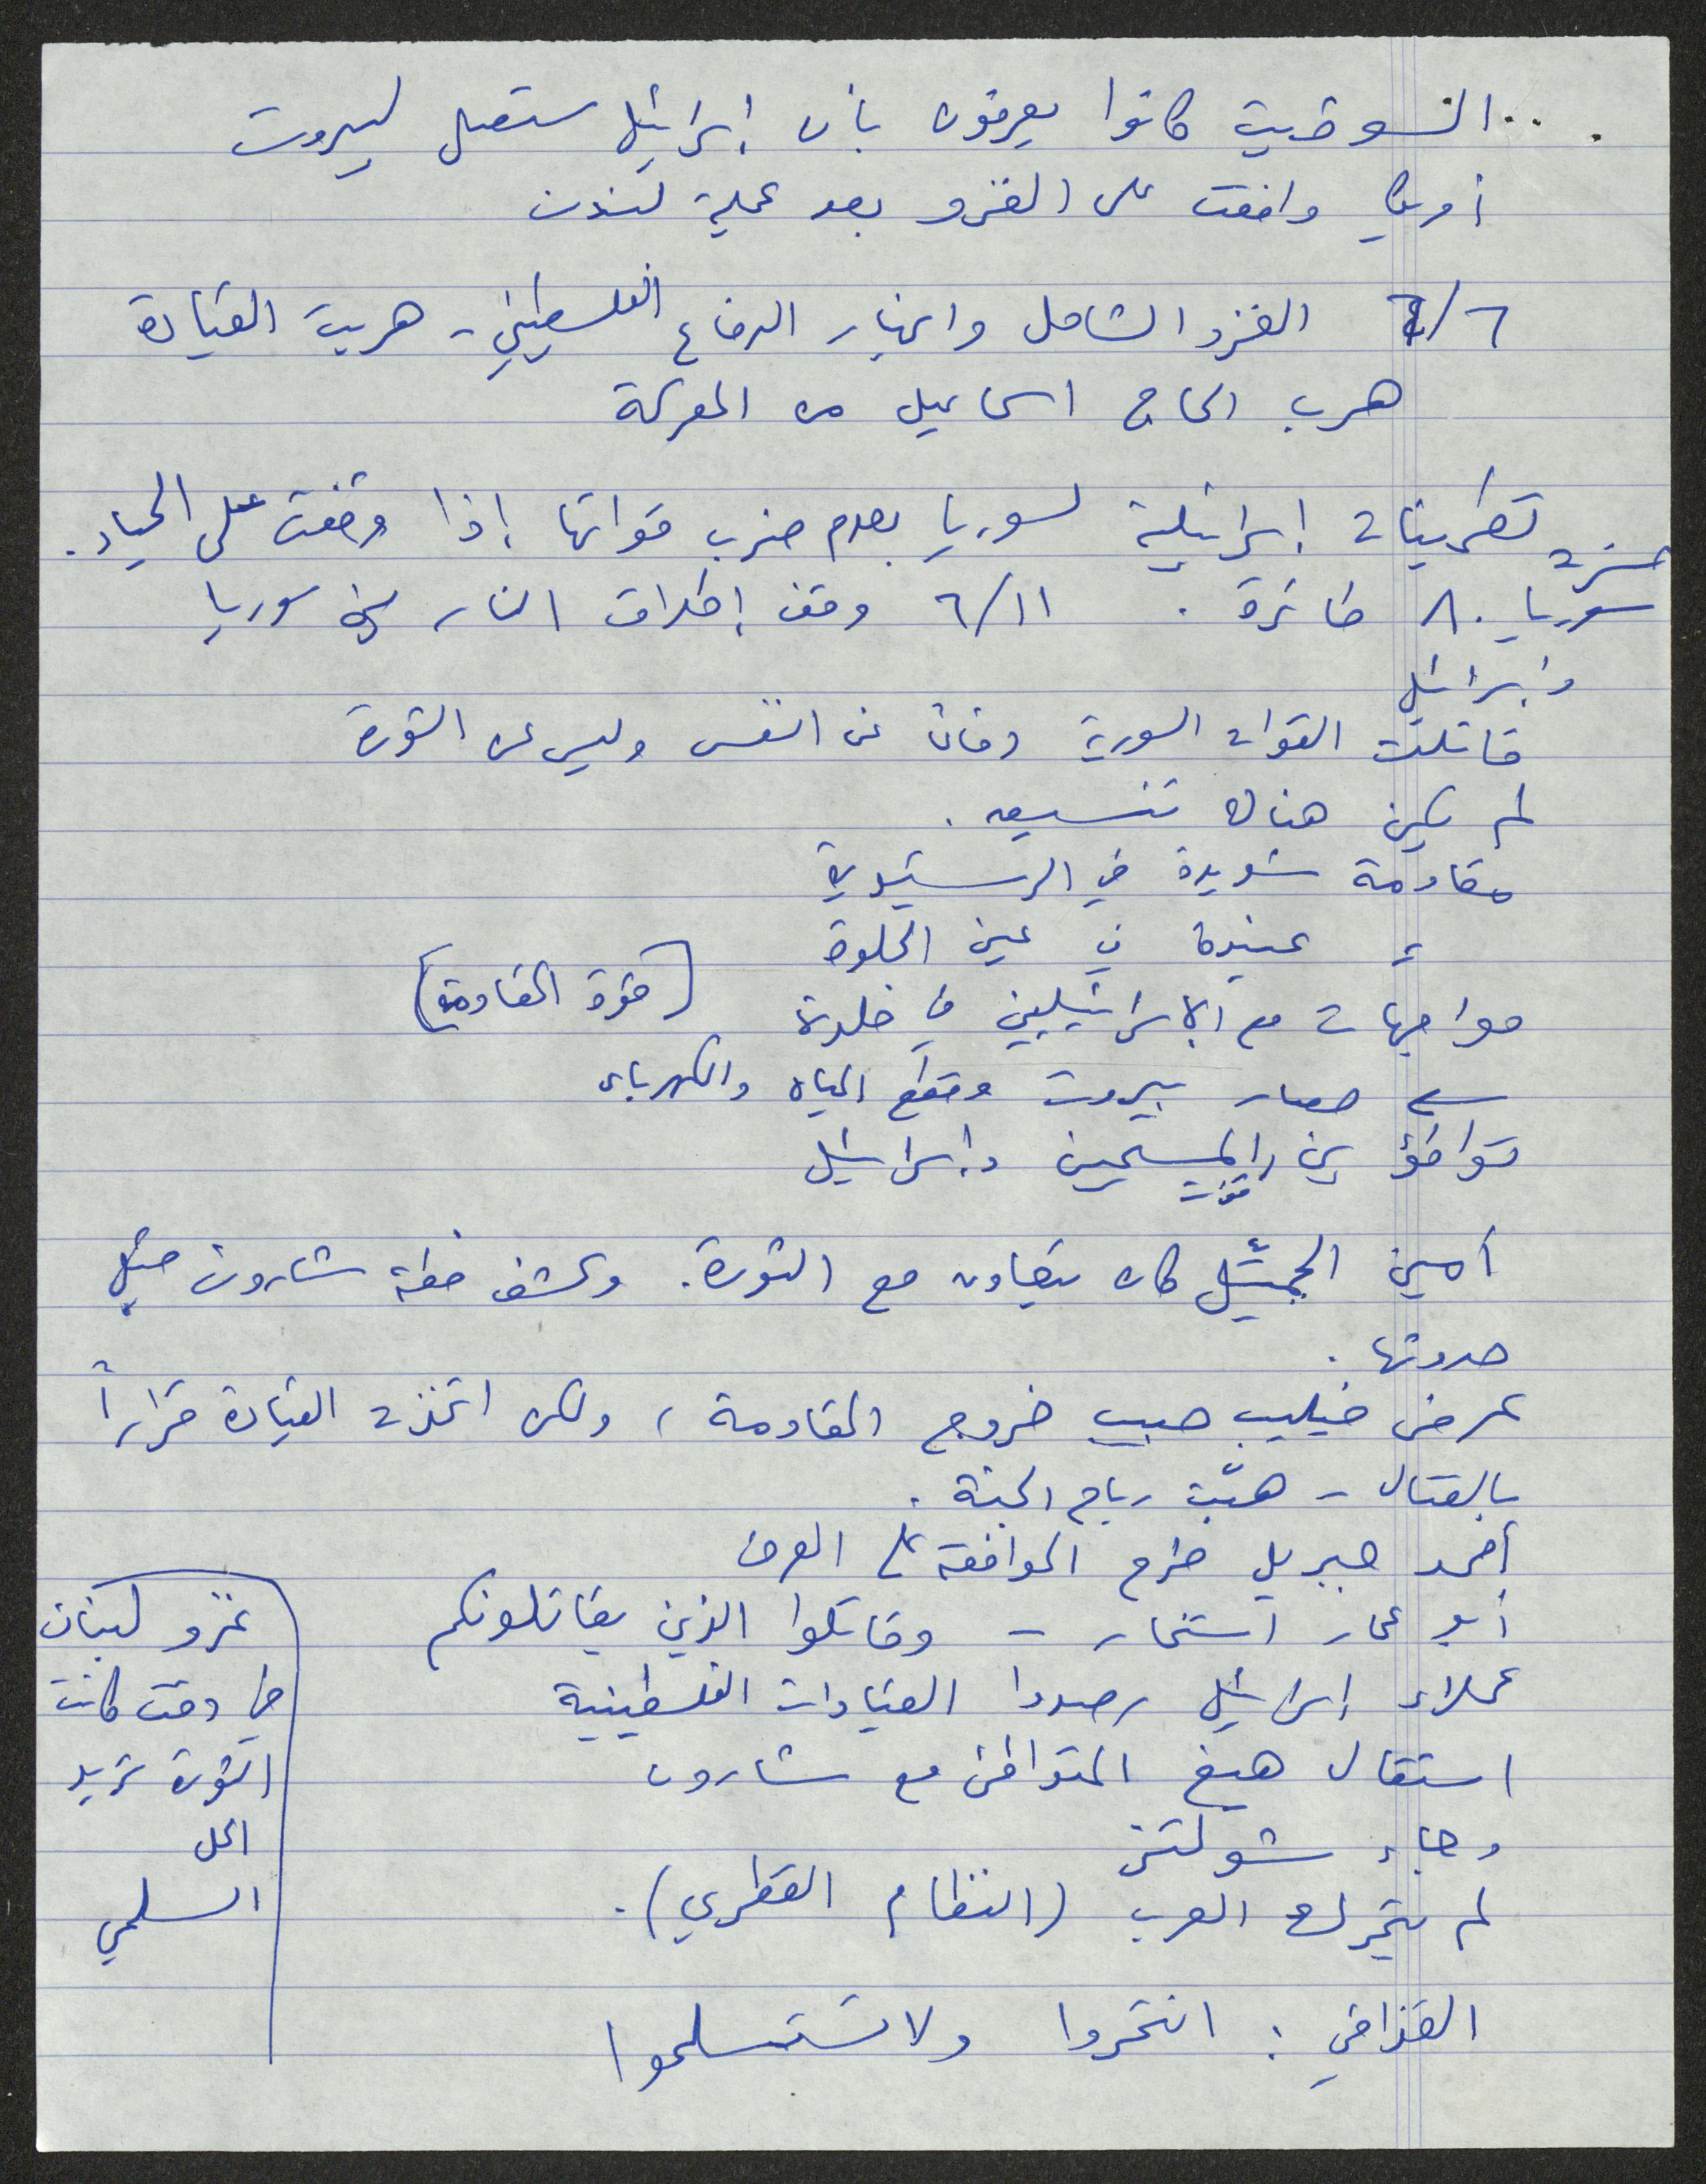 ... السوفييت كانوا يعرفون بأن إسرائيل ستصل لبيروت
أمريكا وافقت على الغزو بعد عملية لندن
٦/٦ الغزو الشامل وانهيار الدفاع الفلسطيني - هربت القيادة
هرب الحاج اسماعيل من المعركة
تطمينات إسرائيلية لسوريا بعدم ضرب قواتها إذا وقفت على الحياد.
خسرت
سوريا ٨٠ طائرة . ٦/١١ وقف إطلاق النار بين سوريا
وإسرائيل
قاتلت القوات السورية دفاعاً عن النفس وليس عن الثورة
لم يكن هناك تنسيق .
مقاومة شديدة في الرشيدية
〃 عنيدة في عين الحلوة
مواجهات مع الإسرائيليين في خلدة (قوة المقاومة)
← حصار بيروت وقطع المياه والكهرباء
توافق بين المسيحيين وإسرائيل
قوات
أمين الجميّل كان يتعاون مع الثورة. وكشف خطة شارون قبل
حدوثها .
عرض فيليب حبيب خروج المقاومة ، ولكن اتخذت القيادة قراراً
بالقتال - هبّت رياح الجنة .
أحمد جبريل طرح الموافقة على العرض
أبو عمار استخار - وقاتلوا الذين يقاتلونكم
عملاء إسرائيل رصدوا القيادات الفلسطينية
استقال هيغ المتوافق مع شارون
وجاء شولتز
لم يتحرك العرب (النظام القطري).
القذافي : انتحروا ولا تستسلموا
غزو لبنان
في وقت كانت
الثورة تريد
الحل
السلمي